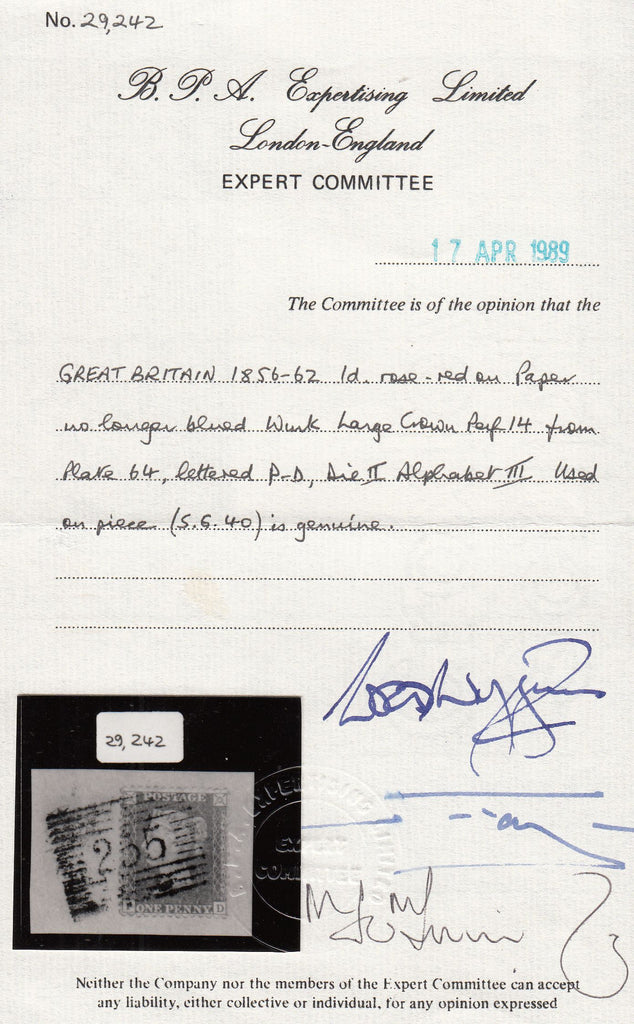 No. 29,242
B. P. A. Expertising Limited
London-England
EXPERT COMMITTEE
17 APR 1989
The Committee is of the opinion that the
GREAT BRITAIN 1856-62 1d. rose-red on Paper
no longer blued Wmk Large Crown Perf 14 from
Plate 64, lettered P-D, Die II Alphabet III Used
on piece (S.G. 40) is genuine.
29,242
POSTAGE
ONE PENNY D
EXPERT
COMMITTEE
Neither the Company nor the members of the Expert Committee can accept
any liability, either collective or individual, for any opinion expressed